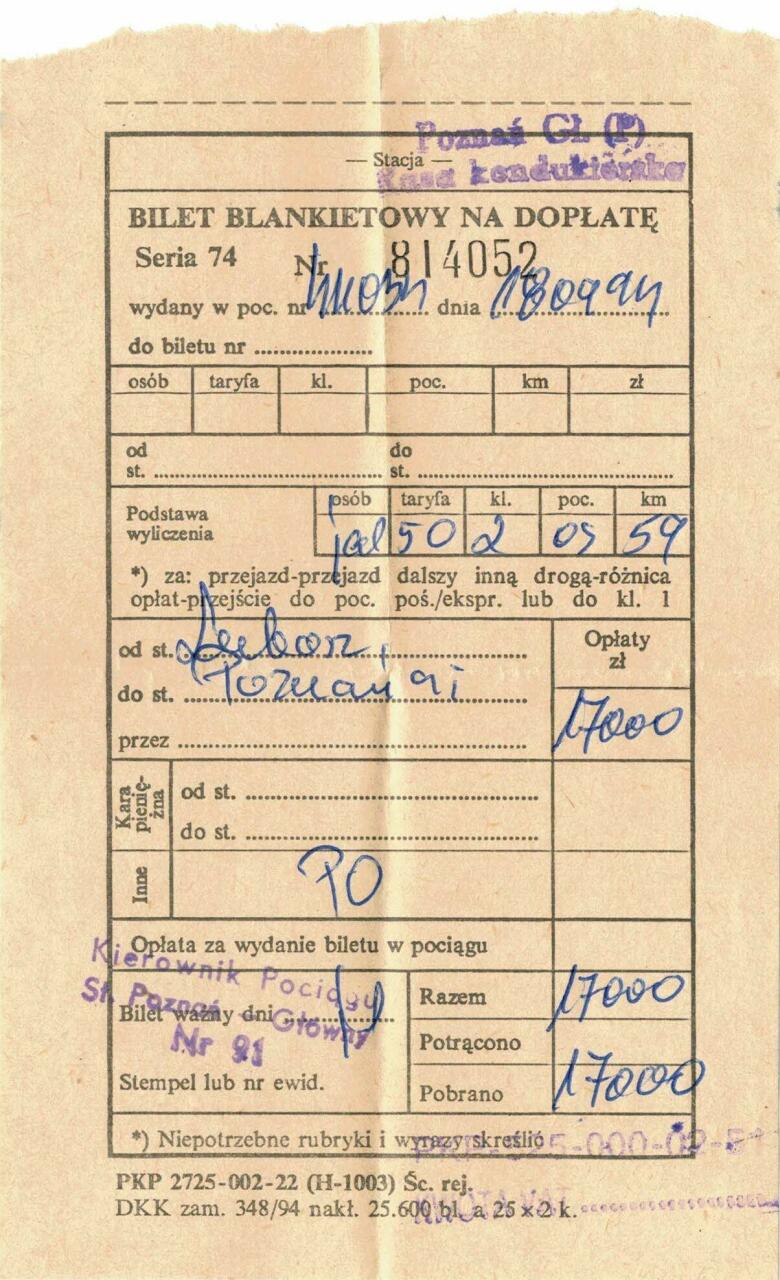 Poznań Gł. (P)
— Stacja —
Kasa konduktorska
BILET BLANKIETOWY NA DOPŁATĘ
Seria 74 Nr 814052
wydany w poc. nr dnia 180994
do biletu nr
osób taryfa kl. poc. km zł
od do
st. st.
osób taryfa kl. poc. km
Podstawa
wyliczenia
50 2 59
*) za: przejazd-przejazd dalszy inną drogą-różnica
opłat-przejście do poc. poś./ekspr. lub do kl. 1
od st. Luboń
Opłaty
zł
do st. Poznań
17000
przez
Kara pienię-żna
od st.
do st.
Inne
PO
Opłata za wydanie biletu w pociągu
Kierownik Pociągu
St. Poznań Główny
Nr 91
Razem 17000
Bilet ważny dni
Potrącono
Stempel lub nr ewid.
Pobrano 17000
*) Niepotrzebne rubryki i wyrazy skreślić
PKP 2725-002-22 (H-1003) Śc. rej.
DKK zam. 348/94 nakł. 25.600 bl. a 25 × 2 k.